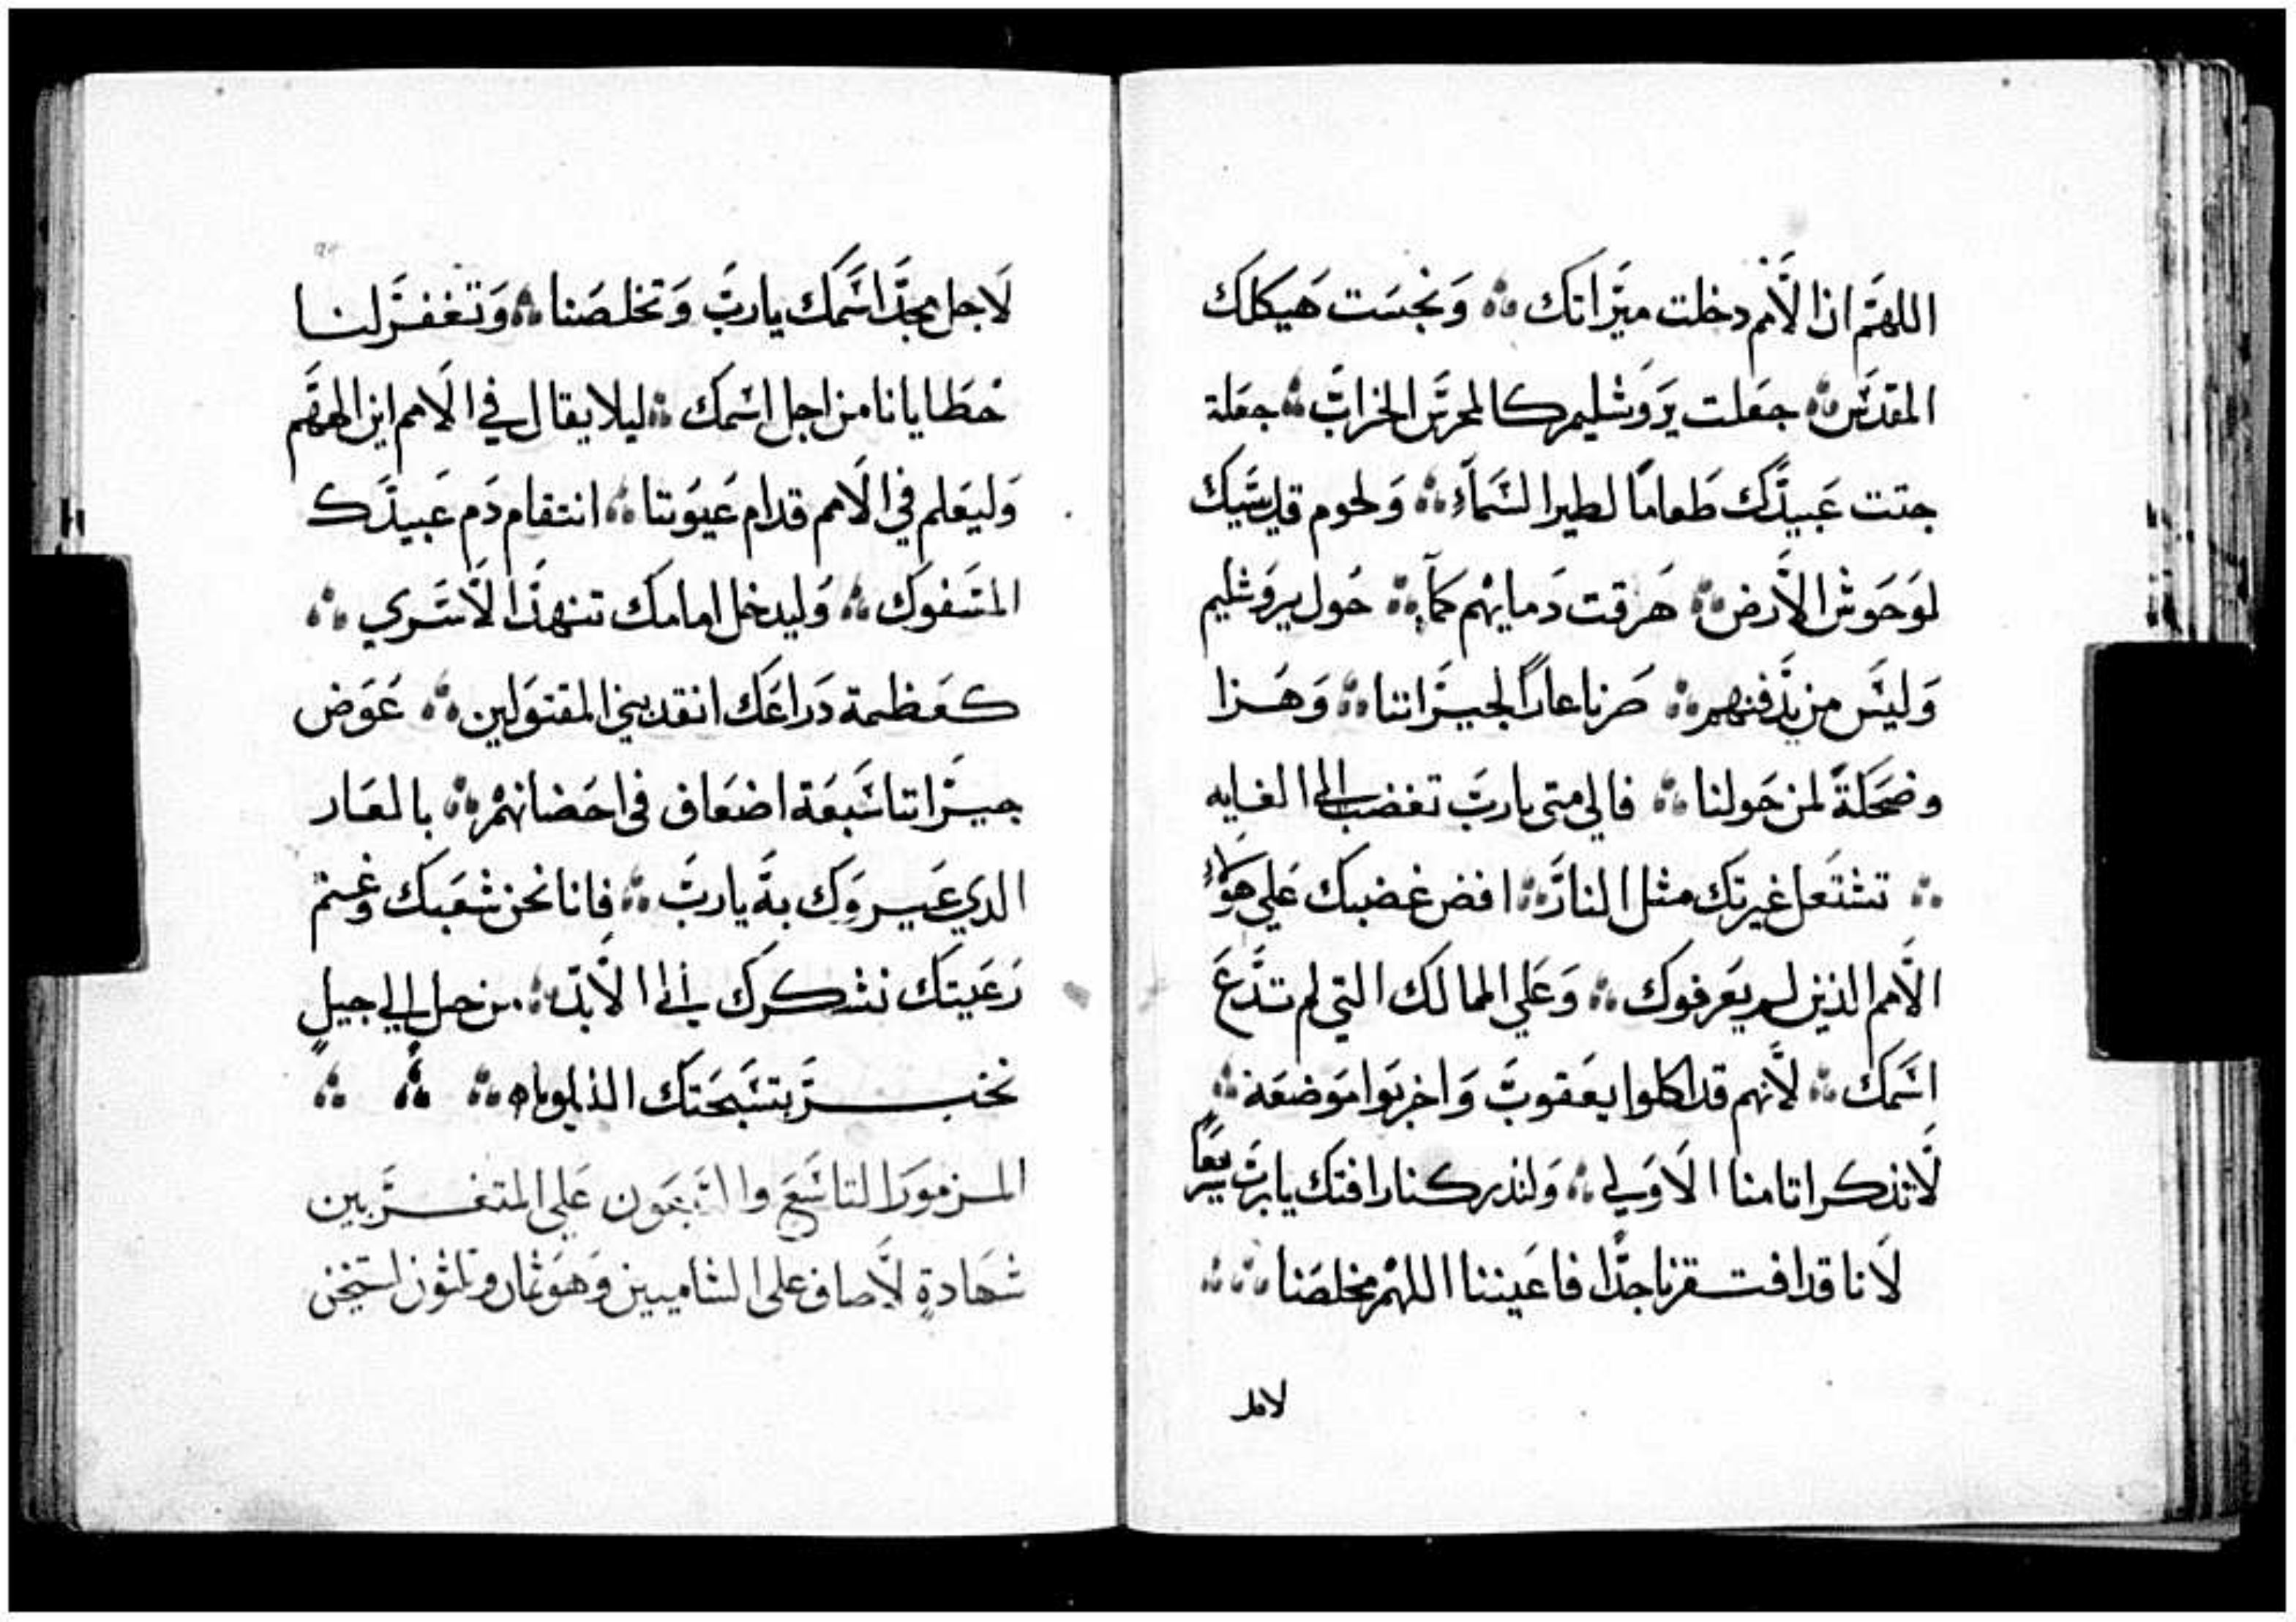 اللهم ان الأمم دخلت ميراتك ؞ ونجست هيكلك
المقدس ؞ جعلت يروشليم كالمحرس الخراب ؞ جعلة
جتت عبيدك طعاما لطير السماء ؞ ولحوم قديسيك
لوحوش الأرض ؞ هرقت دمايهم كمآء ؞ حول يروشليم
وليس من يدفنهم ؞ صرنا عارا لجيراننا ؞ وهزا
وضحكة لمن حولنا ؞ فالي متى يارب تغضب الى الغايه
؞ تشتعل غيرتك مثل النار ؞ افض غضبك علي هولاء
الأمم الذين لم يعرفوك ؞ وعلي الممالك التي لم تدع
اسمك ؞ لأنهم قد اكلوا يعقوب واخربوا موضعه ؞
لا تذكر اتامنا الاولي ؞ ولتدركنا رافتك يارب سريعا
لانا قد افتقرنا جدا فاعيننا اللهم مخلصنا ؞ ؞
لاجل
لاجل مجد اسمك يارب وتخلصنا ؞ وتغفر لنا
خطايانا من اجل اسمك ؞ ليلا يقال في الامم اين الههم
وليعلم في الامم قدام عيوننا ؞ انتقام دم عبيدك
المسفوك ؞ وليدخل امامك تنهد الأسري ؞
كعظمة دراعك انقد بني المقتولين ؞ عوض
جيراننا سبعة اضعاف في احضانهم ؞ بالعار
الدي عيروك به يارب ؞ فانا نحن شعبك وغنم
رعيتك نشكرك الى الأبد ؞ من جيل الي جيل
نخبر بتسبحتك الذيلوياه ؞ ؞ ؞
المزمور التاسع والسبعون علي المتغربين
شهادة لأصاف على الشاميين وهو ثمان وتلثون استيخن